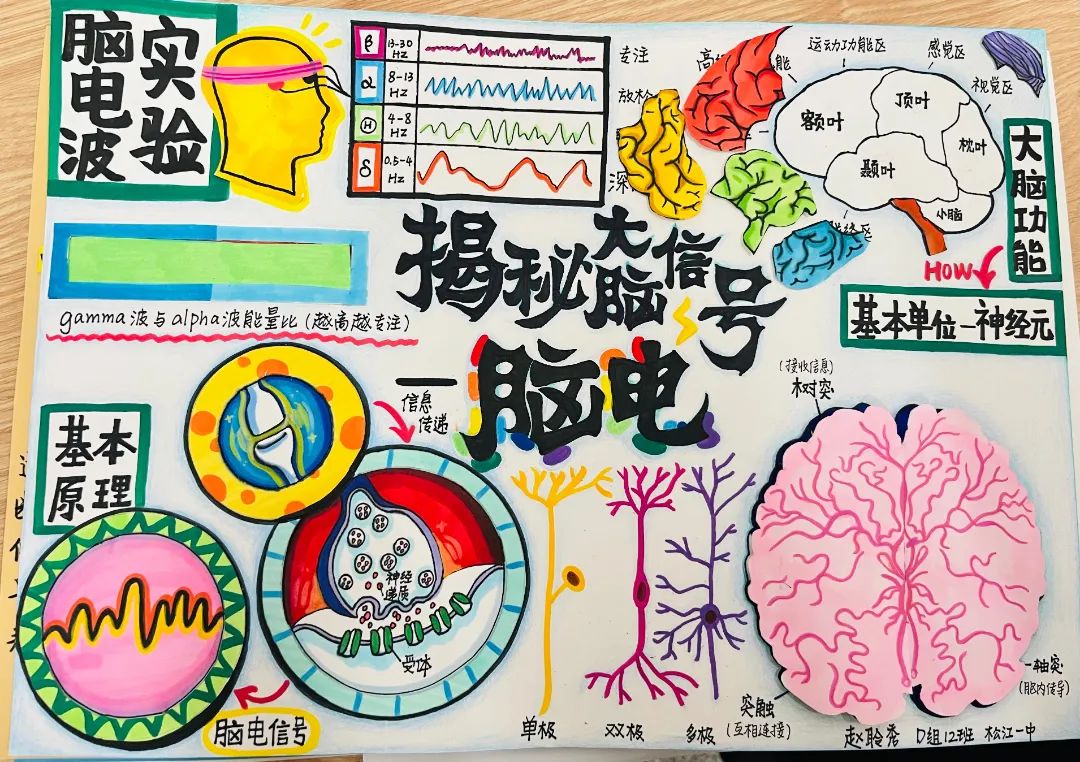 脑电波
实验
β 13-30 HZ
α 8-13 HZ
Θ 4-8 HZ
δ 0.5-4 HZ
专注
放松
深
高
能
运动功能区
感觉区
视觉区
额叶
顶叶
枕叶
颞叶
小脑
大脑功能
HOW
基本单位-神经元
揭秘大脑信号
一脑电
gamma波与alpha波能量比(越高越专注)
基本
原理
信息
传递
神经
递质
受体
脑电信号
单极
双极
多极
(接收信息)
树突
突触
(互相连接)
轴突
(脑内传导)
赵聆秀 D组12班 松江一中